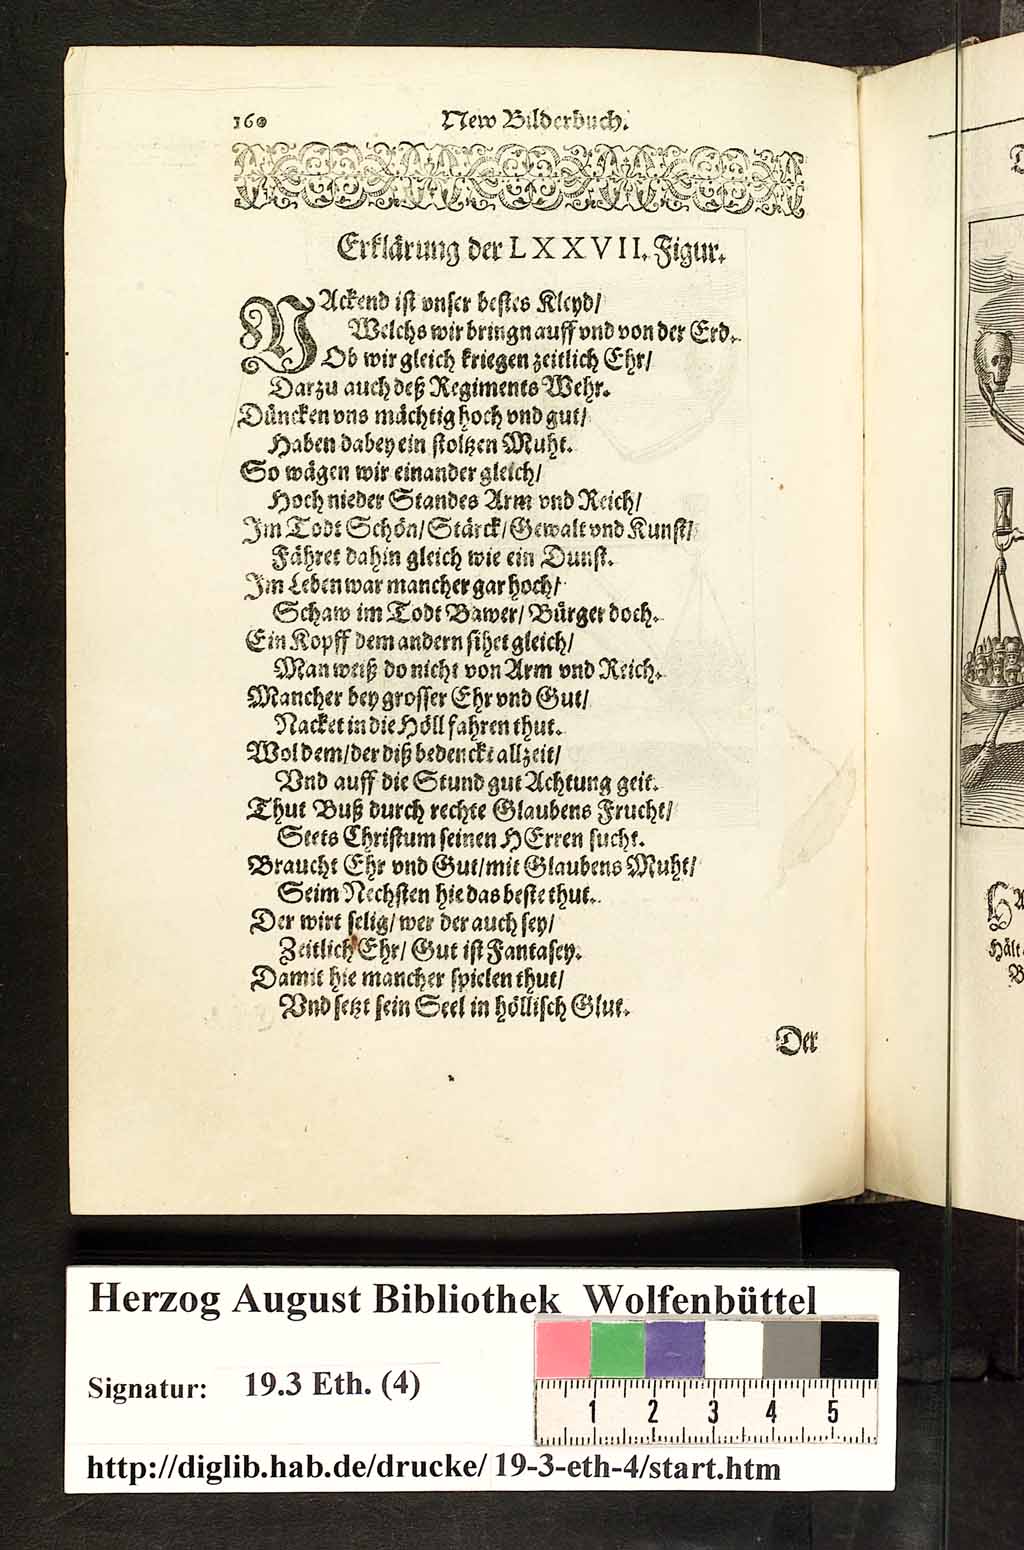 160 New Bilderbuch.
Erklärung der LXXVII. Figur.
NAckend ist vnser bestes Kleyd/
Welchs wir bringn auff vnd von der Erd.
Ob wir gleich kriegen zeitlich Ehr/
Darzu auch deß Regiments Wehr.
Düncken vns mächtig hoch vnd gut/
Haben dabey ein stoltzen Muht.
So wägen wir einander gleich/
Hoch nieder Standes Arm vnd Reich/
Im Todt Schön/ Stärck/ Gewalt vnd Kunst/
Fähret dahin gleich wie ein Dunst.
Im Leben war mancher gar hoch/
Schaw im Todt Bawer/ Bürger doch.
Ein Kopff dem andern sihet gleich/
Man weiß do nicht von Arm vnd Reich.
Mancher bey grosser Ehr vnd Gut/
Nacket in die Höll fahren thut.
Wol dem/ der diß bedenckt allzeit/
Vnd auff die Stund gut Achtung geit.
Thut Buß durch rechte Glaubens Frucht/
Stets Christum seinen HErren sucht.
Braucht Ehr vnd Gut/ mit Glaubens Muht/
Seim Nechsten hie das beste thut.
Der wirt selig/ wer der auch sey/
Zeitlich Ehr/ Gut ist Fantasey.
Damit hie mancher spielen thut/
Vnd setzt sein Seel in höllisch Glut.
Der
Hält
Herzog August Bibliothek Wolfenbüttel
Signatur: 19.3 Eth. (4)
1 2 3 4 5
http://diglib.hab.de/drucke/19-3-eth-4/start.htm